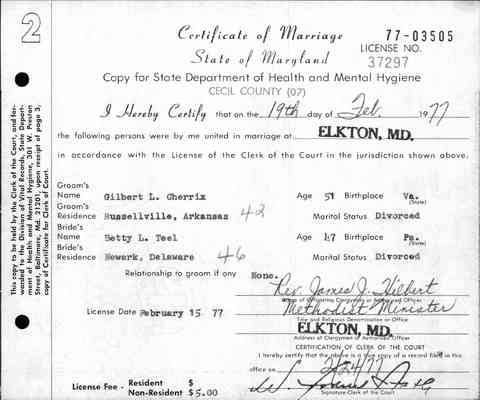 2
Certificate of Marriage
77-03505
State of Maryland
LICENSE NO.
37297
Copy for State Department of Health and Mental Hygiene
CECIL COUNTY (07)
I Hereby Certify that on the 19th day of Feb. 1977
the following persons were by me united in marriage at ELKTON, MD.
in accordance with the License of the Clerk of the Court in the jurisdiction shown above.
Groom's
Name Gilbert L. Cherrix Age 51 Birthplace Va.
(State)
Groom's
Residence Russellville, Arkansas 42 Marital Status Divorced
Bride's
Name Betty L. Teel Age 47 Birthplace Pa.
(State)
Bride's
Residence Newark, Delaware 46 Marital Status Divorced
Relationship to groom if any None.
Rev. James J. Hilbert
Name of Officiating Clergyman or Authorized Officer
License Date February 15 77 Methodist Minister
Title and Religious Denomination or Office
ELKTON, MD.
Address of Clergyman or Authorized Officer
CERTIFICATION OF CLERK OF THE COURT
I hereby certify that the above is a true copy of a record filed in this
office on 2/24/77
License Fee - Resident $
Non-Resident $5.00
Signature-Clerk of the Court
This copy to be held by the Clerk of the Court, and forwarded to the Division of Vital Records, State Department of Health and Mental Hygiene, 301 W. Preston Street, Baltimore, Md. 21201, upon receipt of page 3, copy of Certificate for Clerk of Court.